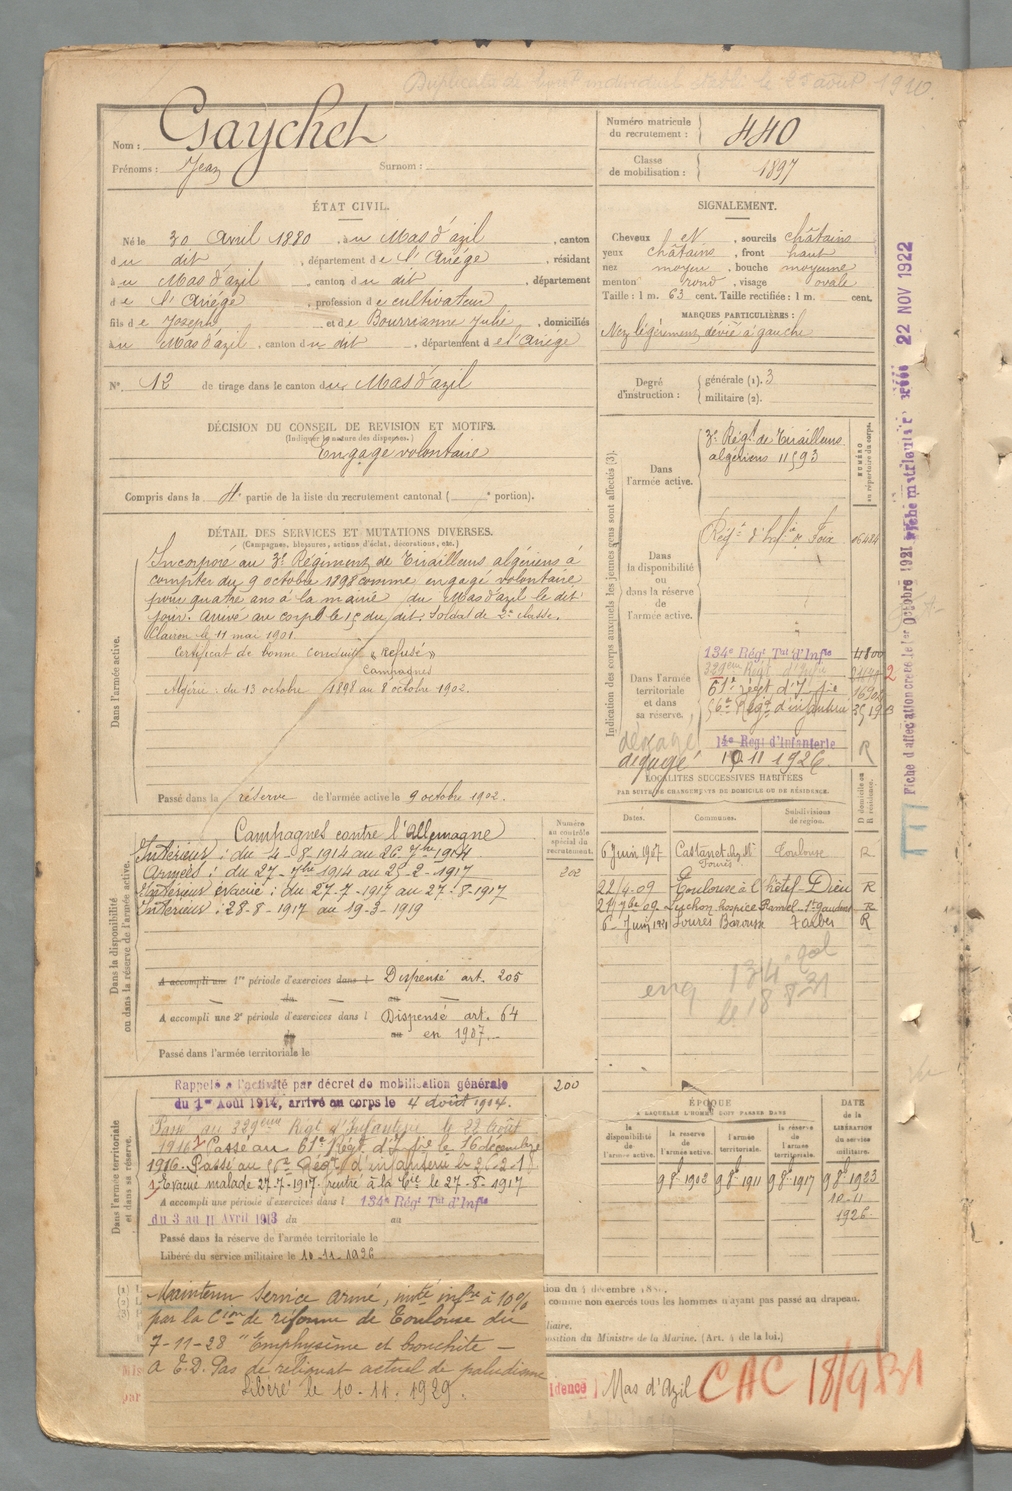 Duplicata de
établi le 25 août 1910.
Nom : Gaychet
Prénoms : Jean Surnom :
Numéro matricule
du recrutement : 440
Classe
de mobilisation : 1897
ÉTAT CIVIL.
Né le 30 Avril 1880, à u Mas d'azil, canton
du dit, département de l'Ariége, résidant
à u Mas d'azil, canton du dit, département
de l'Ariége, profession de cultivateur
fils de Joseph et de Bourrianne Julie, domiciliés
à u Mas d'azil, canton du dit, département de l'Ariége
N° 12 de tirage dans le canton du Mas d'azil
SIGNALEMENT.
Cheveux et N, sourcils châtains
yeux châtains, front haut
nez moyen, bouche moyenne
menton rond, visage ovale
Taille : 1 m. 63 cent. Taille rectifiée : 1 m. cent.
MARQUES PARTICULIÈRES :
Nez légèrement dévié à gauche
Degré
d'instruction : générale (1). 3
militaire (2).
DÉCISION DU CONSEIL DE REVISION ET MOTIFS.
(Indiquer la nature des dispenses.)
Engagé volontaire
Compris dans la 4e partie de la liste du recrutement cantonal ( e portion).
DÉTAIL DES SERVICES ET MUTATIONS DIVERSES.
(Campagnes, blessures, actions d'éclat, décorations, etc.)
Dans l'armée active.
Incorporé au 3e Régiment de Tirailleurs algériens à
compter du 9 octobre 1898 comme engagé volontaire
pour quatre ans à la mairie du Mas d'azil le dit
jour. Arrivé au corps le 15 du dit. Soldat de 2e classe.
Clairon le 11 mai 1901.
Certificat de bonne conduite « Refusé »
Campagnes
Algérie : du 13 octobre 1898 au 8 octobre 1902.
Passé dans la réserve de l'armée active le 9 octobre 1902.
Indication des corps auxquels les jeunes gens sont affectés (3).
NUMÉRO
au répertoire du corps.
Dans
l'armée active.
3e Régt de Tirailleurs
algériens 11593
Dans
la disponibilité
ou
dans la réserve
de
l'armée active.
Régt d'Infie de Foix 06484
Dans l'armée
territoriale
et dans
sa réserve.
134e Régt Tal d'Infie 4800
329eme Régt d'Infie
61e régt d'Infie 16902
56e Régt d'infanterie
14e Régt d'Infanterie R
dégagé
dégagé 10 11 1926
LOCALITÉS SUCCESSIVES HABITÉES
PAR SUITE DE CHANGEMENTS DE DOMICILE OU DE RÉSIDENCE.
D domicile ou
R résidence.
Dates. Communes. Subdivisions
de région.
6 Juin 1907 Castanet Toulouse R
22/4-09 Toulouse à l'hôtel-Dieu R
Luchon hospice Ramel St Gaudens R
6 Juin 1921 Loures Barousse Tarbes R
134e
le 18 8 31
Numéro
au contrôle
spécial du
recrutement.
202
Dans la disponibilité
ou dans la réserve de l'armée active.
Campagnes contre l'Allemagne
Intérieur : du 4-8-1914 au 26 7bre 1914
Armées : du 27-7bre 1914 au 25-2-1917
Intérieur évacué : du 27-7-1917 au 27-8-1917
Intérieur : 28-8-1917 au 19-3-1919
A accompli une 1re période d'exercices dans l Dispensé art. 205
du au
A accompli une 2e période d'exercices dans l Dispensé art. 64
du au en 1907.
Passé dans l'armée territoriale le
200
Dans l'armée territoriale
et dans sa réserve.
Rappelé à l'activité par décret de mobilisation générale
du 1er Août 1914, arrivé au corps le 4 août 1914.
Passé au 329eme Régt d'Infanterie le 22 Août
1916. Passé au 61e Régt d'Infie le 16 décembre
1916. Passé au 56e Régt d'infanterie le
Evacué malade 27-7-1917. rentré à la Cie le 27-8-1917
A accompli une période d'exercices dans l 134e Régt Tal d'Infie
du 3 au 11 Avril 1913 du au
Passé dans la réserve de l'armée territoriale le
Libéré du service militaire le 10-11-1926
ÉPOQUE
A LAQUELLE L'HOMME DOIT PASSER DANS
DATE
de la
LIBÉRATION
du service
militaire.
la
disponibilité
de
l'armée active.
la réserve
de
l'armée active.
l'armée
territoriale.
la réserve
de
l'armée
territoriale.
9 8bre 1902 9 8bre 1911 9 8bre 1917 9 8bre 1923
10-11
1926
Maintenu Service armé, invté infre à 10%
par la Cion de réforme de Toulouse du
7-11-28 "Emphysème et bronchite –
A E.D. Pas de reliquat actuel de paludisme
Libéré le 10.11.1929.
(1)
(2)
(3)
tion du 4 décembre
comme non exercés tous les hommes n'ayant pas passé au drapeau.
liaire.
position du Ministre de la Marine. (Art. 4 de la loi.)
idence Mas d'Azil CAC 18/9 31
Fiche d'affectation créée le 1er Octobre 1921 Fiche matricule créée 22 NOV 1922